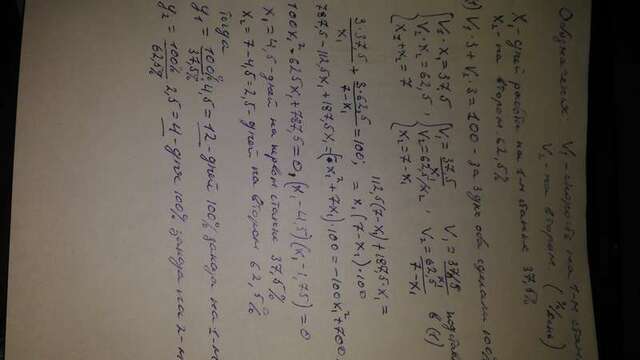 Обозначения: V₁ - скорость на 1-м стан
V₂ на втором (%/день)
x₁ - дней работы на 1-м станке 37,5%
x₂ - на втором 62,5%
1) V₁·3 + V₂·3 = 100 - за 3 дня оба сделали
{V₁·x₁ = 37,5 {V₁ = 37,5/x₁ V₁ = 37,5/x₁
V₂·x₂ = 62,5, V₂ = 62,5/x₂, V₂ = 62,5/7-x₁ в (1)
x₂+x₁ = 7 x₂ = 7-x₁
3·37,5/x₁ + 3·62,5/7-x₁ = 100; 112,5(7-x₁) + 187,5·x₁ =
= x₁(7-x₁)·100
787,5 - 112,5x₁ + 187,5x₁ = (-x₁² + 7x₁)·100 = -100x₁² + 700
100x₁² - 625x₁ + 787,5 = 0, (x₁ - 4,5)(x₁ - 1,75) = 0
x₁ = 4,5 - дней на первом станке 37,5%
x₂ = 7 - 4,5 = 2,5 - дней на втором 62,5%
Тогда
y₁ = 100%/37,5% 4,5 = 12 - дней 100% заказа на 1-м
y₂ = 100%/62,5% 2,5 = 4 - дня 100% заказа на 2-м